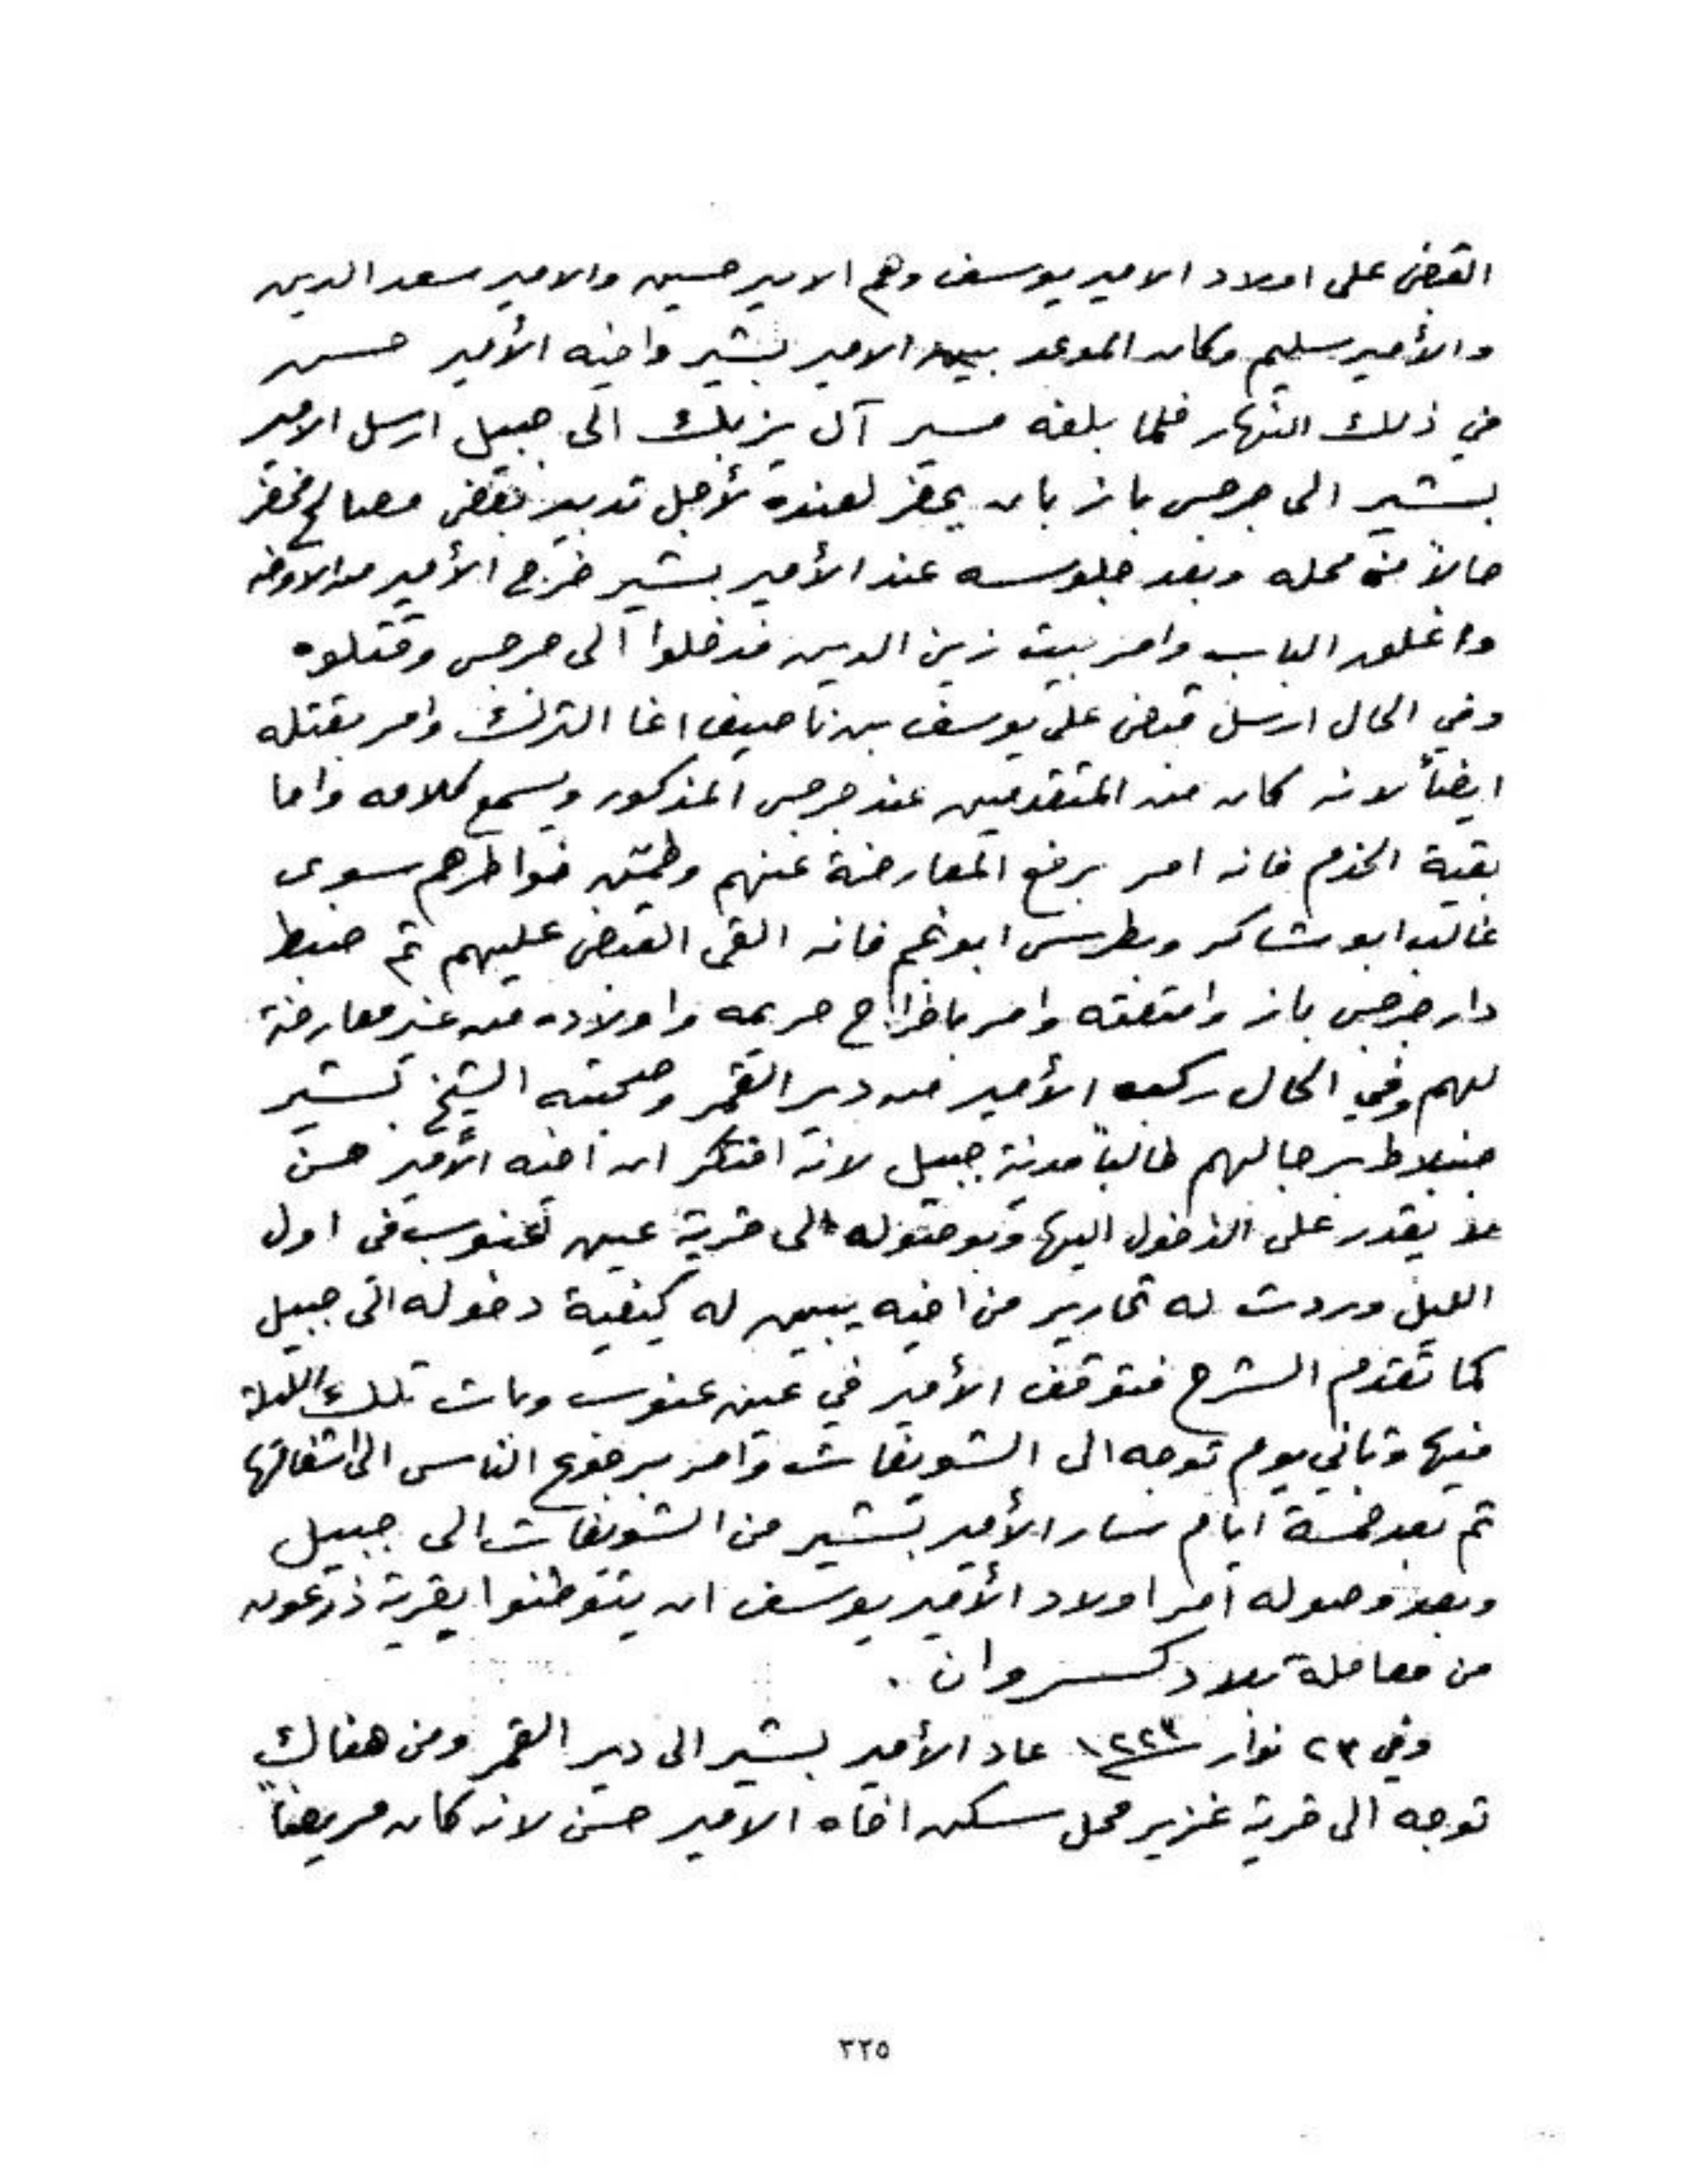 القبض على اولاد الامير يوسف وهم الامير حسين والامير سعد الدين
والأمير سليم وكان الموعد بين الامير بشير واخيه الأمير حسن
في ذلك النهار فلما بلغه مسير آل يزبك الى جبيل ارسل الامير
بشير الى جرجس باز بان يحضر لعنده لأجل تدبير بعض مصالح فحضر
حالاً من محله وبعد جلوسه عند الأمير بشير خرج الأمير من الاوضه
واغلق الباب وامر بيت زين الدين فدخلوا الى جرجس وقتلوه
وفي الحال ارسل قبض على يوسف بن ناصيف اغا الترك وامر بقتله
ايضاً لانه كان من المتقدمين عند جرجس المذكور ويسمع كلامه واما
بقية الخدم فانه امر برفع المعارضة عنهم وطمن خواطرهم سوى
غالب ابو شاكر وبطرس ابو نجم فانه القى القبض عليهم ثم ضبط
دار جرجس باز وامتعته وامر باخراج حريمه واولاده من غير معارضة
لهم وفي الحال ركب الأمير من دير القمر وصحبته الشيخ بشير
جنبلاط برجالهم طالباً مدينة جبيل لانه افتكر ان اخيه الأمير حسن
لا يقدر على الدخول اليها وبوصوله الى قرية عين عنوب في اول
الليل وردت له تحارير من اخيه يبين له كيفية دخوله الى جبيل
كما تقدم الشرح فتوقف الأمير في عين عنوب وبات تلك الليلة
فيها وثاني يوم توجه الى الشويفات وامر برجوع الناس الى اشغالها
ثم بعد خمسة ايام سار الأمير بشير من الشويفات الى جبيل
وبعد وصوله امر اولاد الأمير يوسف ان يتوطنوا بقرية ذرعون
من معاملة بلاد كسروان .
وفي ٢٣ نوار سنة ١٢٢٣ عاد الأمير بشير الى دير القمر ومن هناك
توجه الى قرية غزير محل سكن اخاه الامير حسن لانه كان مريضاً
٣٢٥